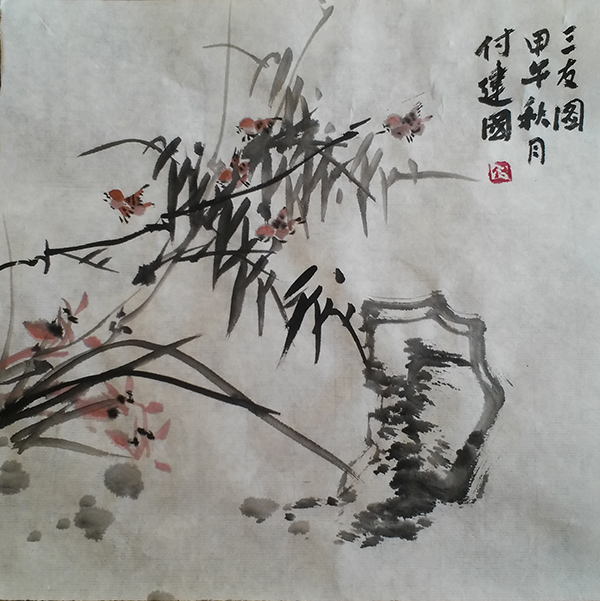 三友图
甲午秋月
付建国